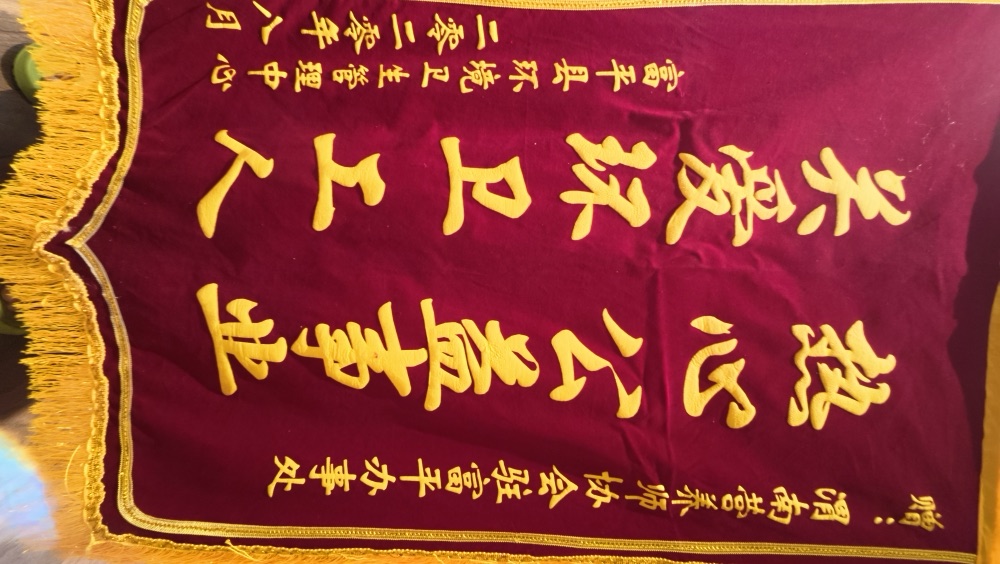 赠：渭南营养师协会驻富平办事处
热心公益事业
关愛环卫工人
富平县环境卫生管理中心
二零二零年八月